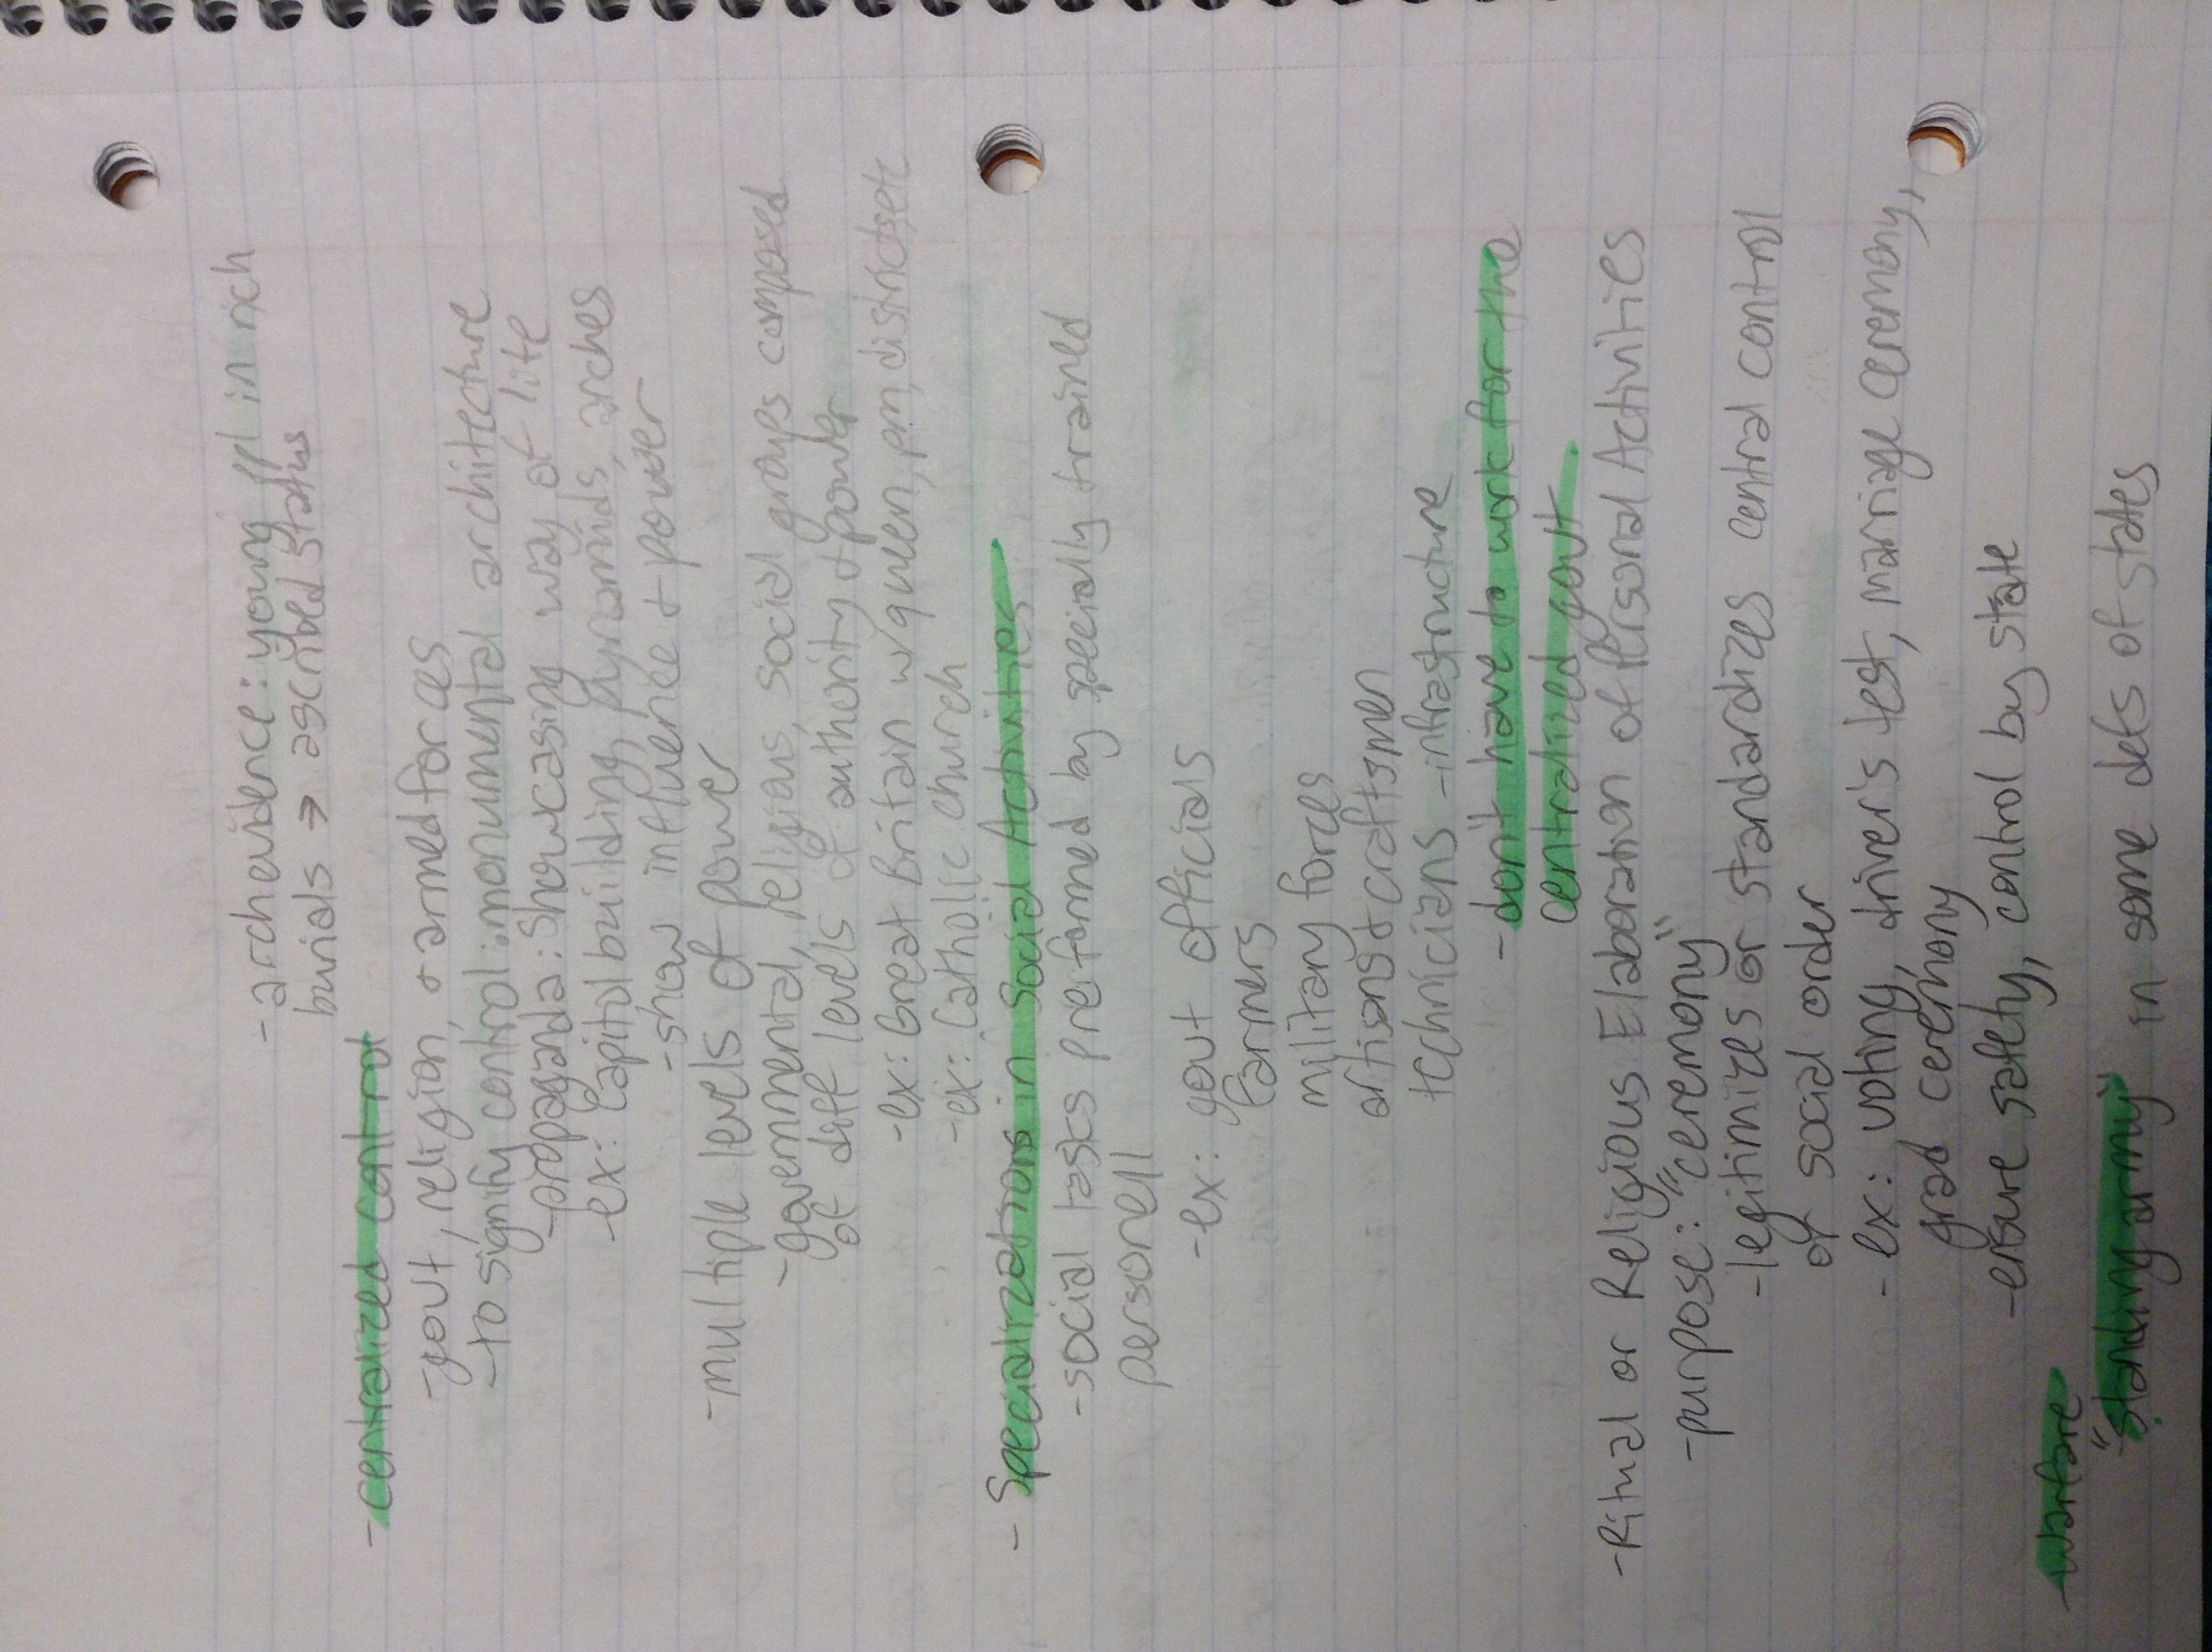 - arch evidence: young ppl in rich
burials → ascribed status
- centralized control
- govt, religion, + armed forces
- to signify control: monumental architecture
- propaganda: showcasing way of life
- ex: Capitol building, pyramids, arches
- show influence + power
- multiple levels of power
- governmental, religious, social groups composed
of diff levels of authority + power
- ex: Great Britain w/ queen, pm, districts, etc
- ex: Catholic church
- Specializations in Social Activities
- social tasks preformed by specially trained
personell
- ex: govt officials
farmers
military forces
artisans + craftsmen
technicians - infrastructure
- don't have to work for the
centralized govt
- Ritual or Religious Elaboration of Personal Activities
- purpose: "ceremony"
- legitimizes or standardizes central control
of social order
- ex: voting, driver's test, marriage ceremony,
grad ceremony
- ensure safety, control by state
- warfare
"standing army" in some defs of states